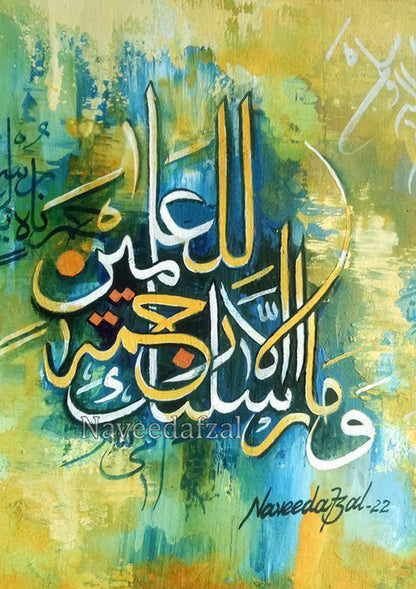 وما أرسلنك إلا رحمة للعلمين
Naveedafzal
Naveedafzal-22